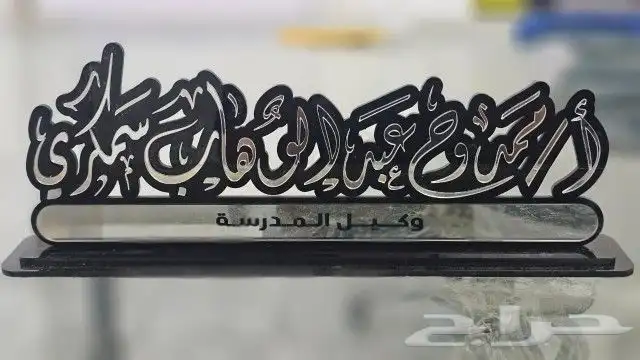 أ/ممدوح عبدالوهاب سمكري
وكيل المدرسة
حراج